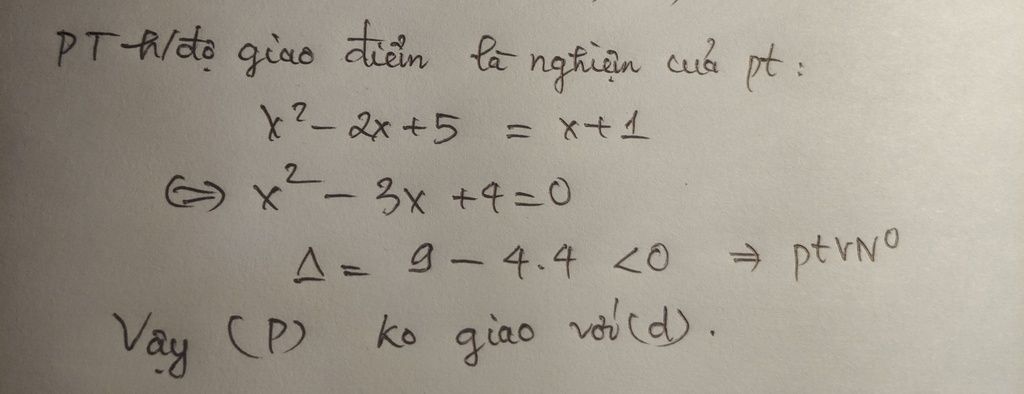 PT h/độ giao điểm là nghiệm của pt :
x² - 2x + 5 = x + 1
⇔ x² - 3x + 4 = 0
Δ = 9 - 4.4 < 0 ⇒ pt VN⁰
Vậy (P) ko giao với (d).